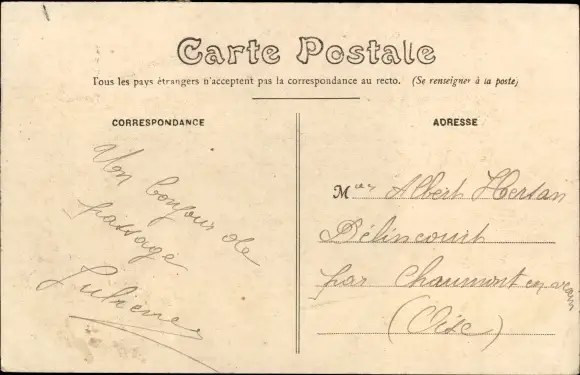 Carte Postale
Tous les pays étrangers n'acceptent pas la correspondance au recto. (Se renseigner à la poste)
CORRESPONDANCE
ADRESSE
Un bonjour de
passage
Julienne
M Albert Hersan
Bélincourt
par Chaumont en vexin
(Oise)